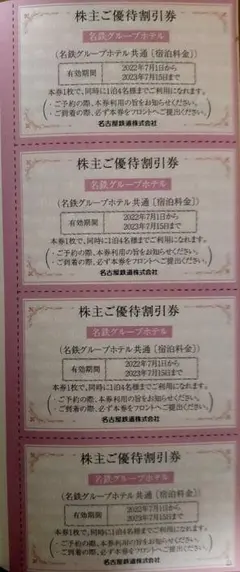 株主ご優待割引券
名鉄グループホテル
(名鉄グループホテル共通〔宿泊料金〕)
有効期間 2022年7月1日から
2023年7月15日まで
本券1枚で、同時に1泊4名様までご利用になれます。
(・ご予約の際、本券利用の旨をお知らせください。
・ご到着の際、必ず本券をフロントへご提出ください。)
名古屋鉄道株式会社
株主ご優待割引券
名鉄グループホテル
(名鉄グループホテル共通〔宿泊料金〕)
有効期間 2022年7月1日から
2023年7月15日まで
本券1枚で、同時に1泊4名様までご利用になれます。
(・ご予約の際、本券利用の旨をお知らせください。
・ご到着の際、必ず本券をフロントへご提出ください。)
名古屋鉄道株式会社
株主ご優待割引券
名鉄グループホテル
(名鉄グループホテル共通〔宿泊料金〕)
有効期間 2022年7月1日から
2023年7月15日まで
本券1枚で、同時に1泊4名様までご利用になれます。
(・ご予約の際、本券利用の旨をお知らせください。
・ご到着の際、必ず本券をフロントへご提出ください。)
名古屋鉄道株式会社
株主ご優待割引券
名鉄グループホテル
(名鉄グループホテル共通〔宿泊料金〕)
有効期間 2022年7月1日から
2023年7月15日まで
本券1枚で、同時に1泊4名様までご利用になれます。
(・ご予約の際、本券利用の旨をお知らせください。
・ご到着の際、必ず本券をフロントへご提出ください。)
名古屋鉄道株式会社